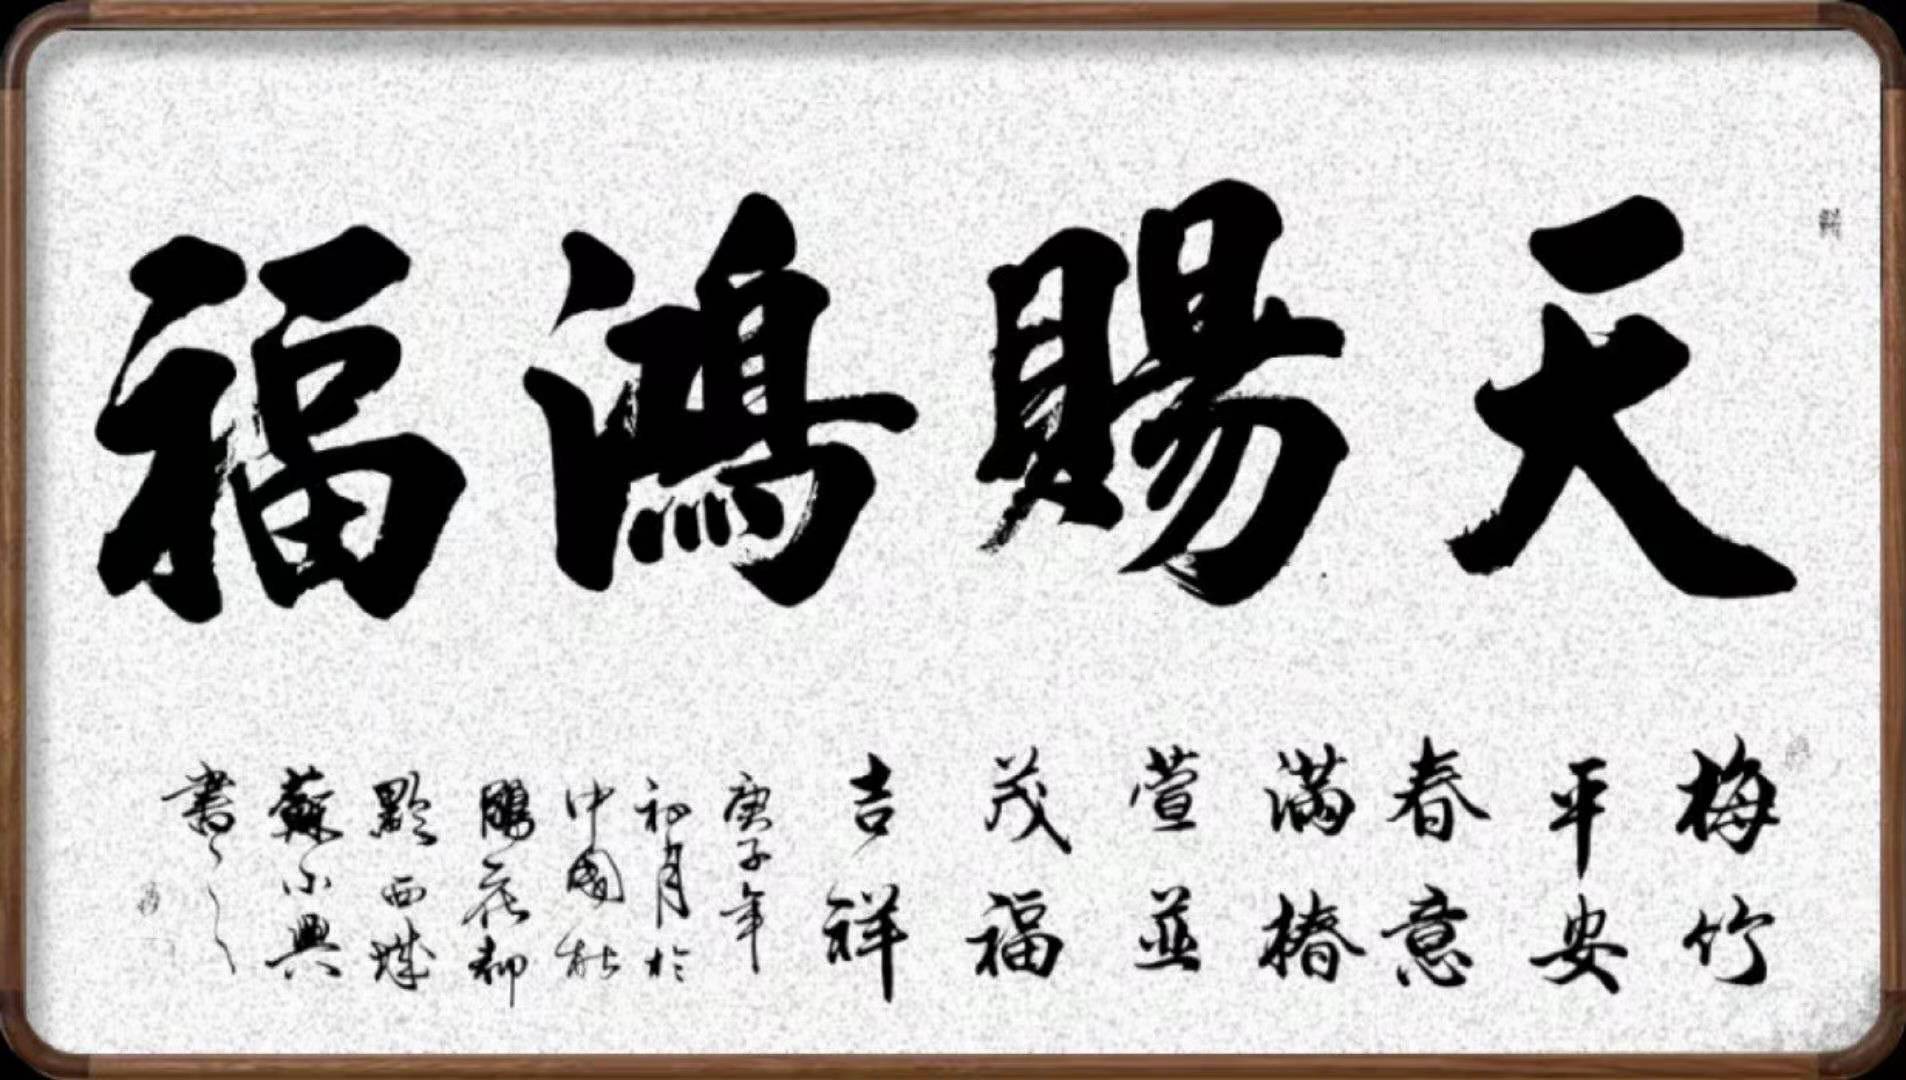 天賜鴻福
梅竹
平安
春意
滿椿
萱並
茂福
吉祥
庚子年
初月於
中國杜
鵑花都
黔西城
蘇小興
書